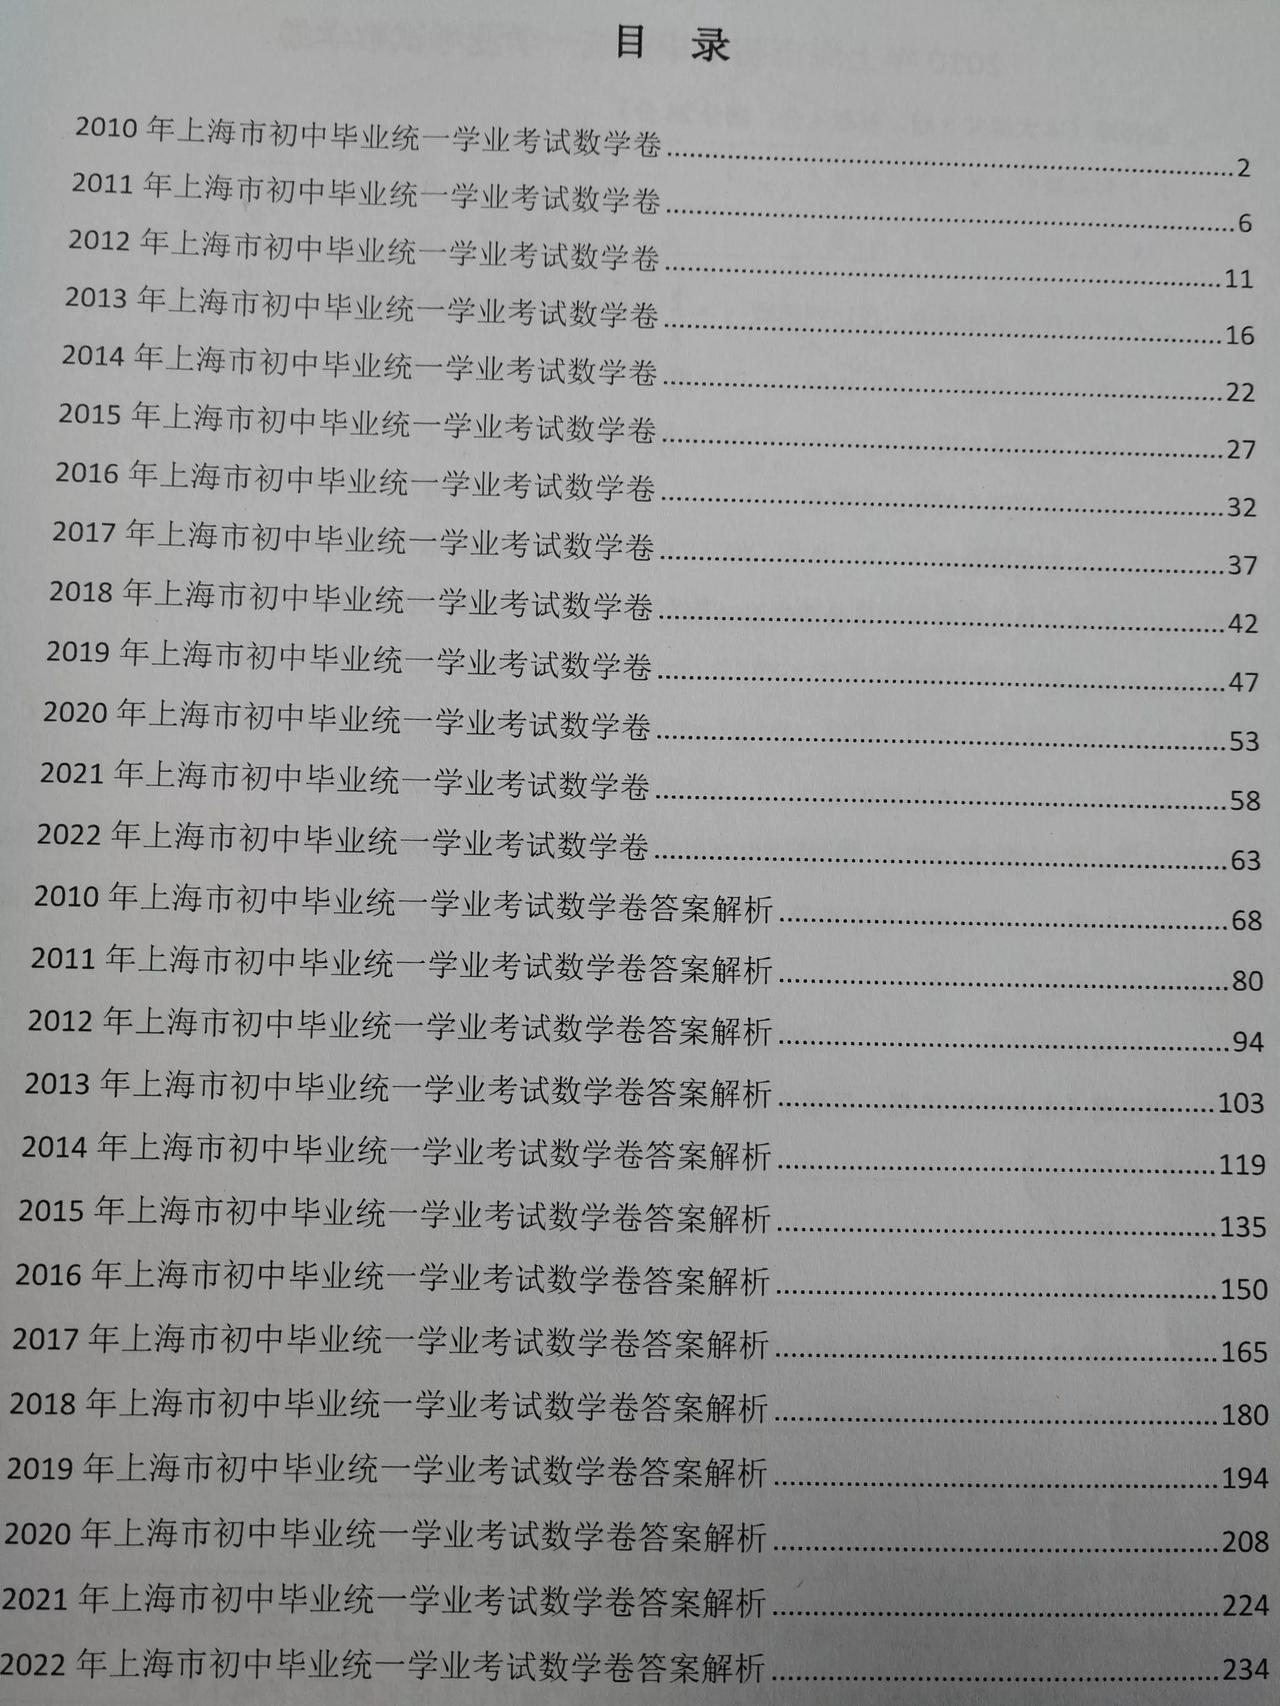 目 录
2010 年上海市初中毕业统一学业考试数学卷......2
2011 年上海市初中毕业统一学业考试数学卷......6
2012 年上海市初中毕业统一学业考试数学卷......11
2013 年上海市初中毕业统一学业考试数学卷......16
2014 年上海市初中毕业统一学业考试数学卷......22
2015 年上海市初中毕业统一学业考试数学卷......27
2016 年上海市初中毕业统一学业考试数学卷......32
2017 年上海市初中毕业统一学业考试数学卷......37
2018 年上海市初中毕业统一学业考试数学卷......42
2019 年上海市初中毕业统一学业考试数学卷......47
2020 年上海市初中毕业统一学业考试数学卷......53
2021 年上海市初中毕业统一学业考试数学卷......58
2022 年上海市初中毕业统一学业考试数学卷......63
2010 年上海市初中毕业统一学业考试数学卷答案解析......68
2011 年上海市初中毕业统一学业考试数学卷答案解析......80
2012 年上海市初中毕业统一学业考试数学卷答案解析......94
2013 年上海市初中毕业统一学业考试数学卷答案解析......103
2014 年上海市初中毕业统一学业考试数学卷答案解析......119
2015 年上海市初中毕业统一学业考试数学卷答案解析......135
2016 年上海市初中毕业统一学业考试数学卷答案解析......150
2017 年上海市初中毕业统一学业考试数学卷答案解析......165
2018 年上海市初中毕业统一学业考试数学卷答案解析......180
2019 年上海市初中毕业统一学业考试数学卷答案解析......194
2020 年上海市初中毕业统一学业考试数学卷答案解析......208
2021 年上海市初中毕业统一学业考试数学卷答案解析......224
2022 年上海市初中毕业统一学业考试数学卷答案解析......234